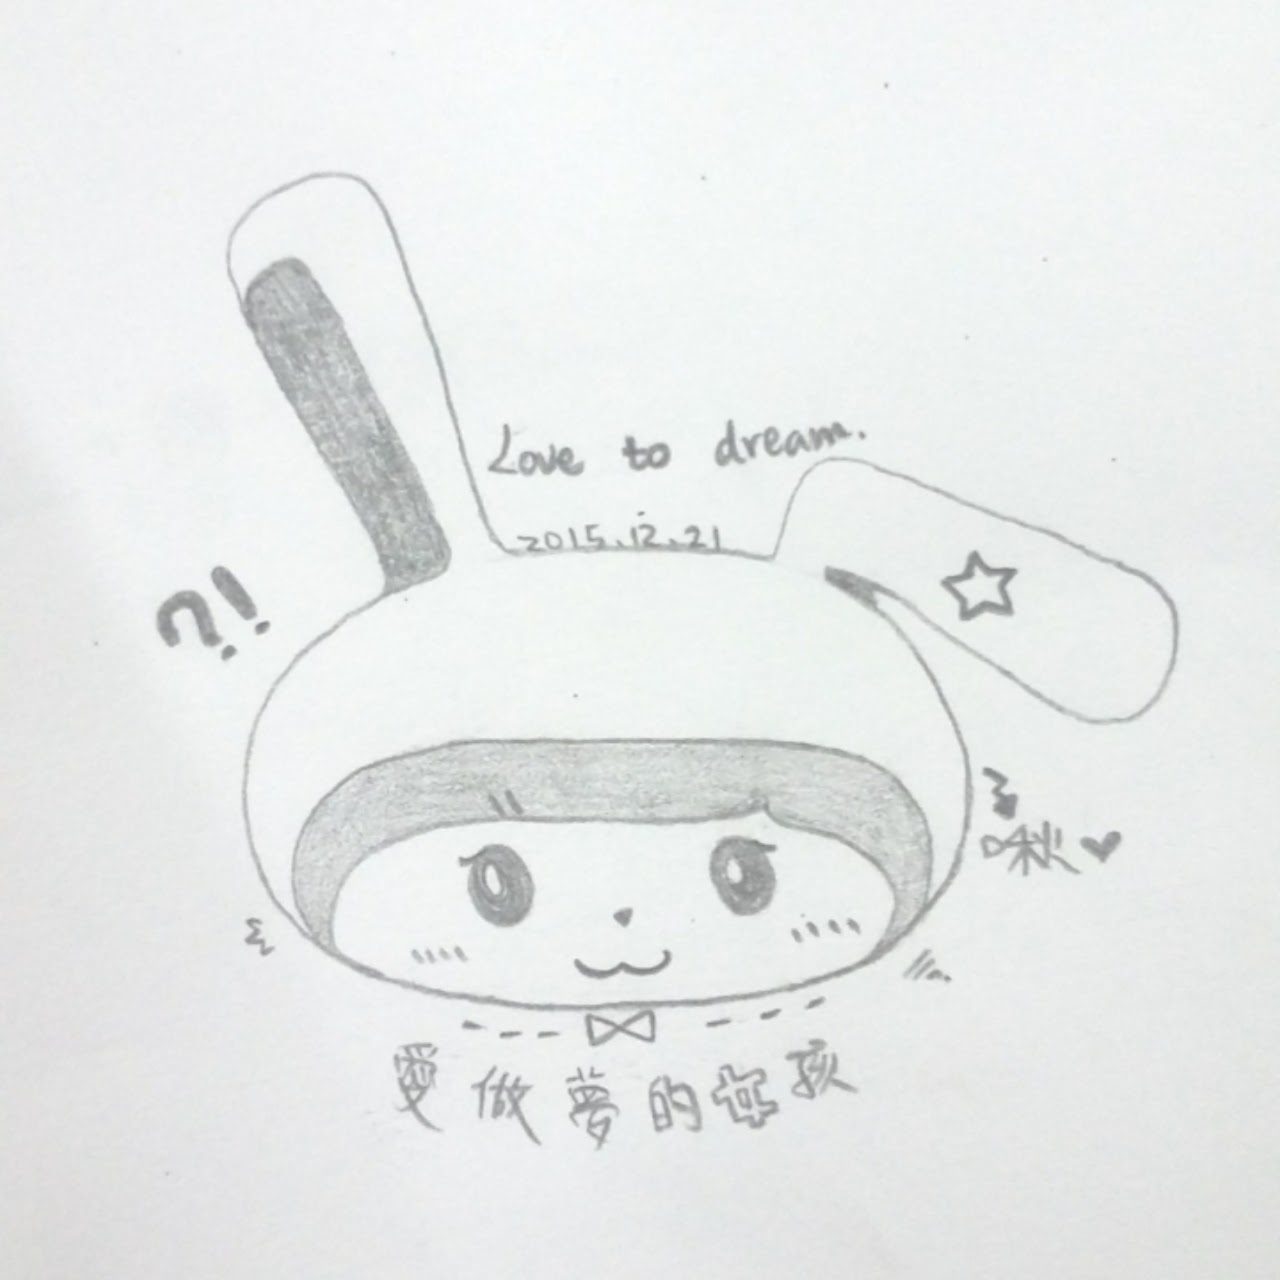 Love to dream.
2015.12.21
?!
啾♥
愛做夢的女孩